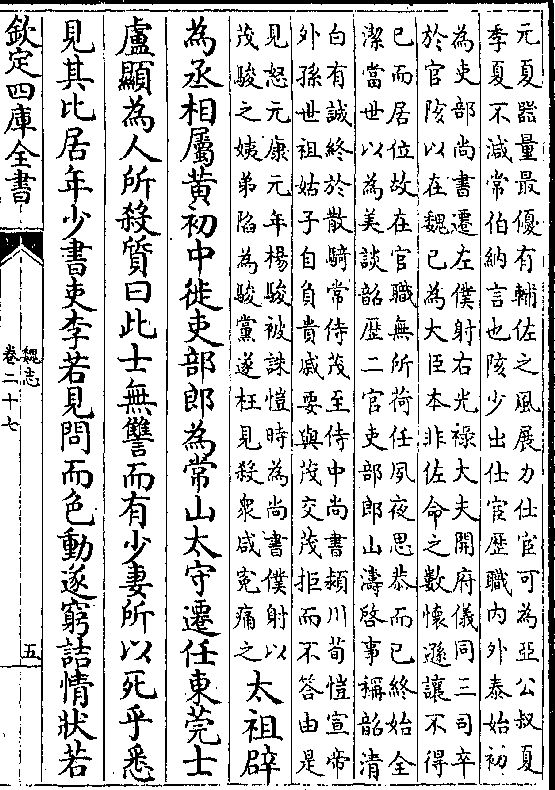 元夏器量最優有輔佐之風展力仕宦可為亞公叔夏
季夏不減常伯納言也陔少出仕宦歷職內外泰始初
為吏部尚書遷左僕射右光祿大夫開府儀同三司卒
於官陔以在魏已為大臣本非佐命之數懷遜讓不得
已而居位故在官職無所荷任夙夜思恭而已終始全
潔當世以為美談韶歷二官吏部郎山濤啓事稱韶清
白有誠終於散騎常侍茂至侍中尚書潁川荀愷宣帝
外孫世祖姑子自負貴戚要與茂交茂拒而不答由是
見怒元康元年楊駿被誅愷時為尚書僕射以
茂駿之姨弟陷為駿黨遂枉見殺衆咸寃痛之
太祖辟
為丞相屬黃初中徙吏部郎為常山太守遷任東莞士
盧顯為人所殺質曰此士無讐而有少妻所以死乎悉
見其比居年少書吏李若見問而色動遂窮詰情狀若
欽定四庫全書
魏志
卷二十七
五